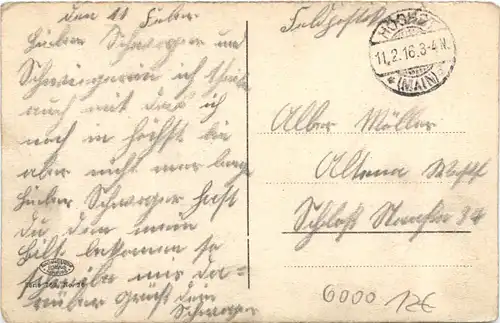 den 11 Feber
Lieber Schwager und
Schwägerin ich theile
euch mit das ich
noch in Höchst bin
aber nicht mer lange
Lieber Schwager hast
du den mein
bekommen so
schreibe mir da-
rüber Gruß dein
Schwager
Feldpostk
HÖCHST
11.2.16.3-4N.
(MAIN)
Alber Möller
Altena Westf
Schloß Straße 34
6000 12€